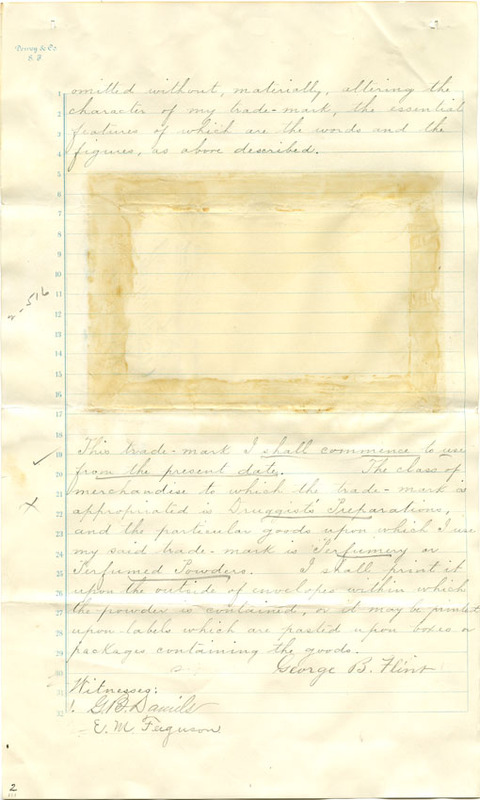 Dewey & Co
S. F.
omitted without, materially, altering the
character of my trade-mark, the essential
features of which are the words and the
figures, as above described.
2-516
This trade-mark I shall commence to use
from the present date. The class of
merchandise to which the trade-mark is
appropriated is Druggists Preparations,
and the particular goods upon which I use
my said trade-mark is Perfumery or
Perfumed Powders. I shall print it
upon the outside of envelopes within which
the powder is contained, or it may be printed
upon labels which are pasted upon boxes or
packages containing the goods.
George B. Flint
Witnesses:
1. G. B. Daniels
E. M. Ferguson
2